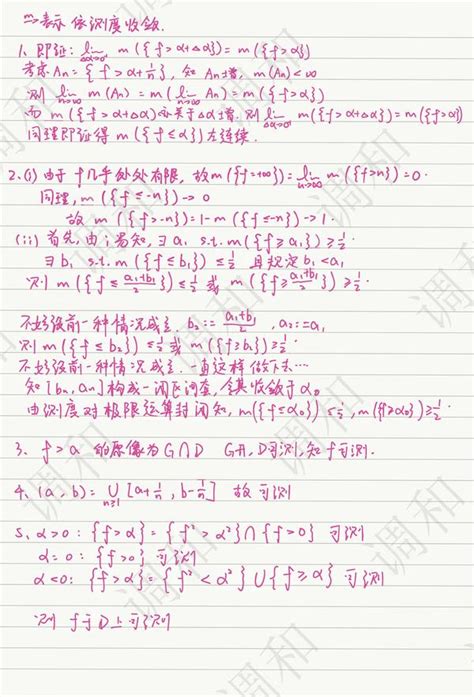 ⇒表示依测度收敛.
1. 即证: lim_{Δα→0⁺} m({f>α+Δα}) = m({f>α})
考虑 An = {f>α+1/n}, 知 An增, m(An)<∞
则 lim_{n→∞} m(An) = m(lim_{n→∞} An) = m({f>α})
而 m({f>α+Δα}) 亦关于Δα增. 则 lim_{Δα→0⁺} m({f>α+Δα}) = m({f>α})
同理即证得 m({f≤α}) 左连续.
2.(i) 由于 f几乎处处有限, 故 m({f=+∞}) = lim_{n→∞} m({f>n}) = 0.
同理, m({f≤-n}) → 0
故 m({f>-n}) = 1-m({f≤-n}) → 1.
(ii) 首先, 由i易知, ∃ a₁ s.t. m({f≥a₁}) ≥ 1/2.
∃ b₁ s.t. m({f≤b₁}) ≤ 1/2 且规定 b₁<a₁
则 m({f≤(a₁+b₁)/2}) ≤ 1/2 或 m({f≥(a₁+b₁)/2}) ≥ 1/2.
不妨设前一种情况成立. b₂:=(a₁+b₁)/2, a₂:=a₁
则 m({f≤b₂}) ≤ 1/2 或 m({f≥b₂}) ≥ 1/2.
不妨设前一种情况成立. 一直这样做下去…
知 [bn, an] 构成一闭区间套, 令其收敛于α₀
由测度对极限运算封闭知, m({f≤α₀}) ≤ 1/2, m({f≥α₀}) ≥ 1/2.
3. f>a 的原像为 G∩D G开, D可测, 知f可测.
4. (a,b) = ⋃_{n≥1} [a+1/n, b-1/n] 故可测
5. α>0: {f>α} = {f²>α²}∩{f>0} 可测
α=0: {f>0} 可测
α<0: {f>α} = {f²<α²}∪{f≥α} 可测
则 f于D上可测
调和
调和
调和
调和
调和
调和
调和